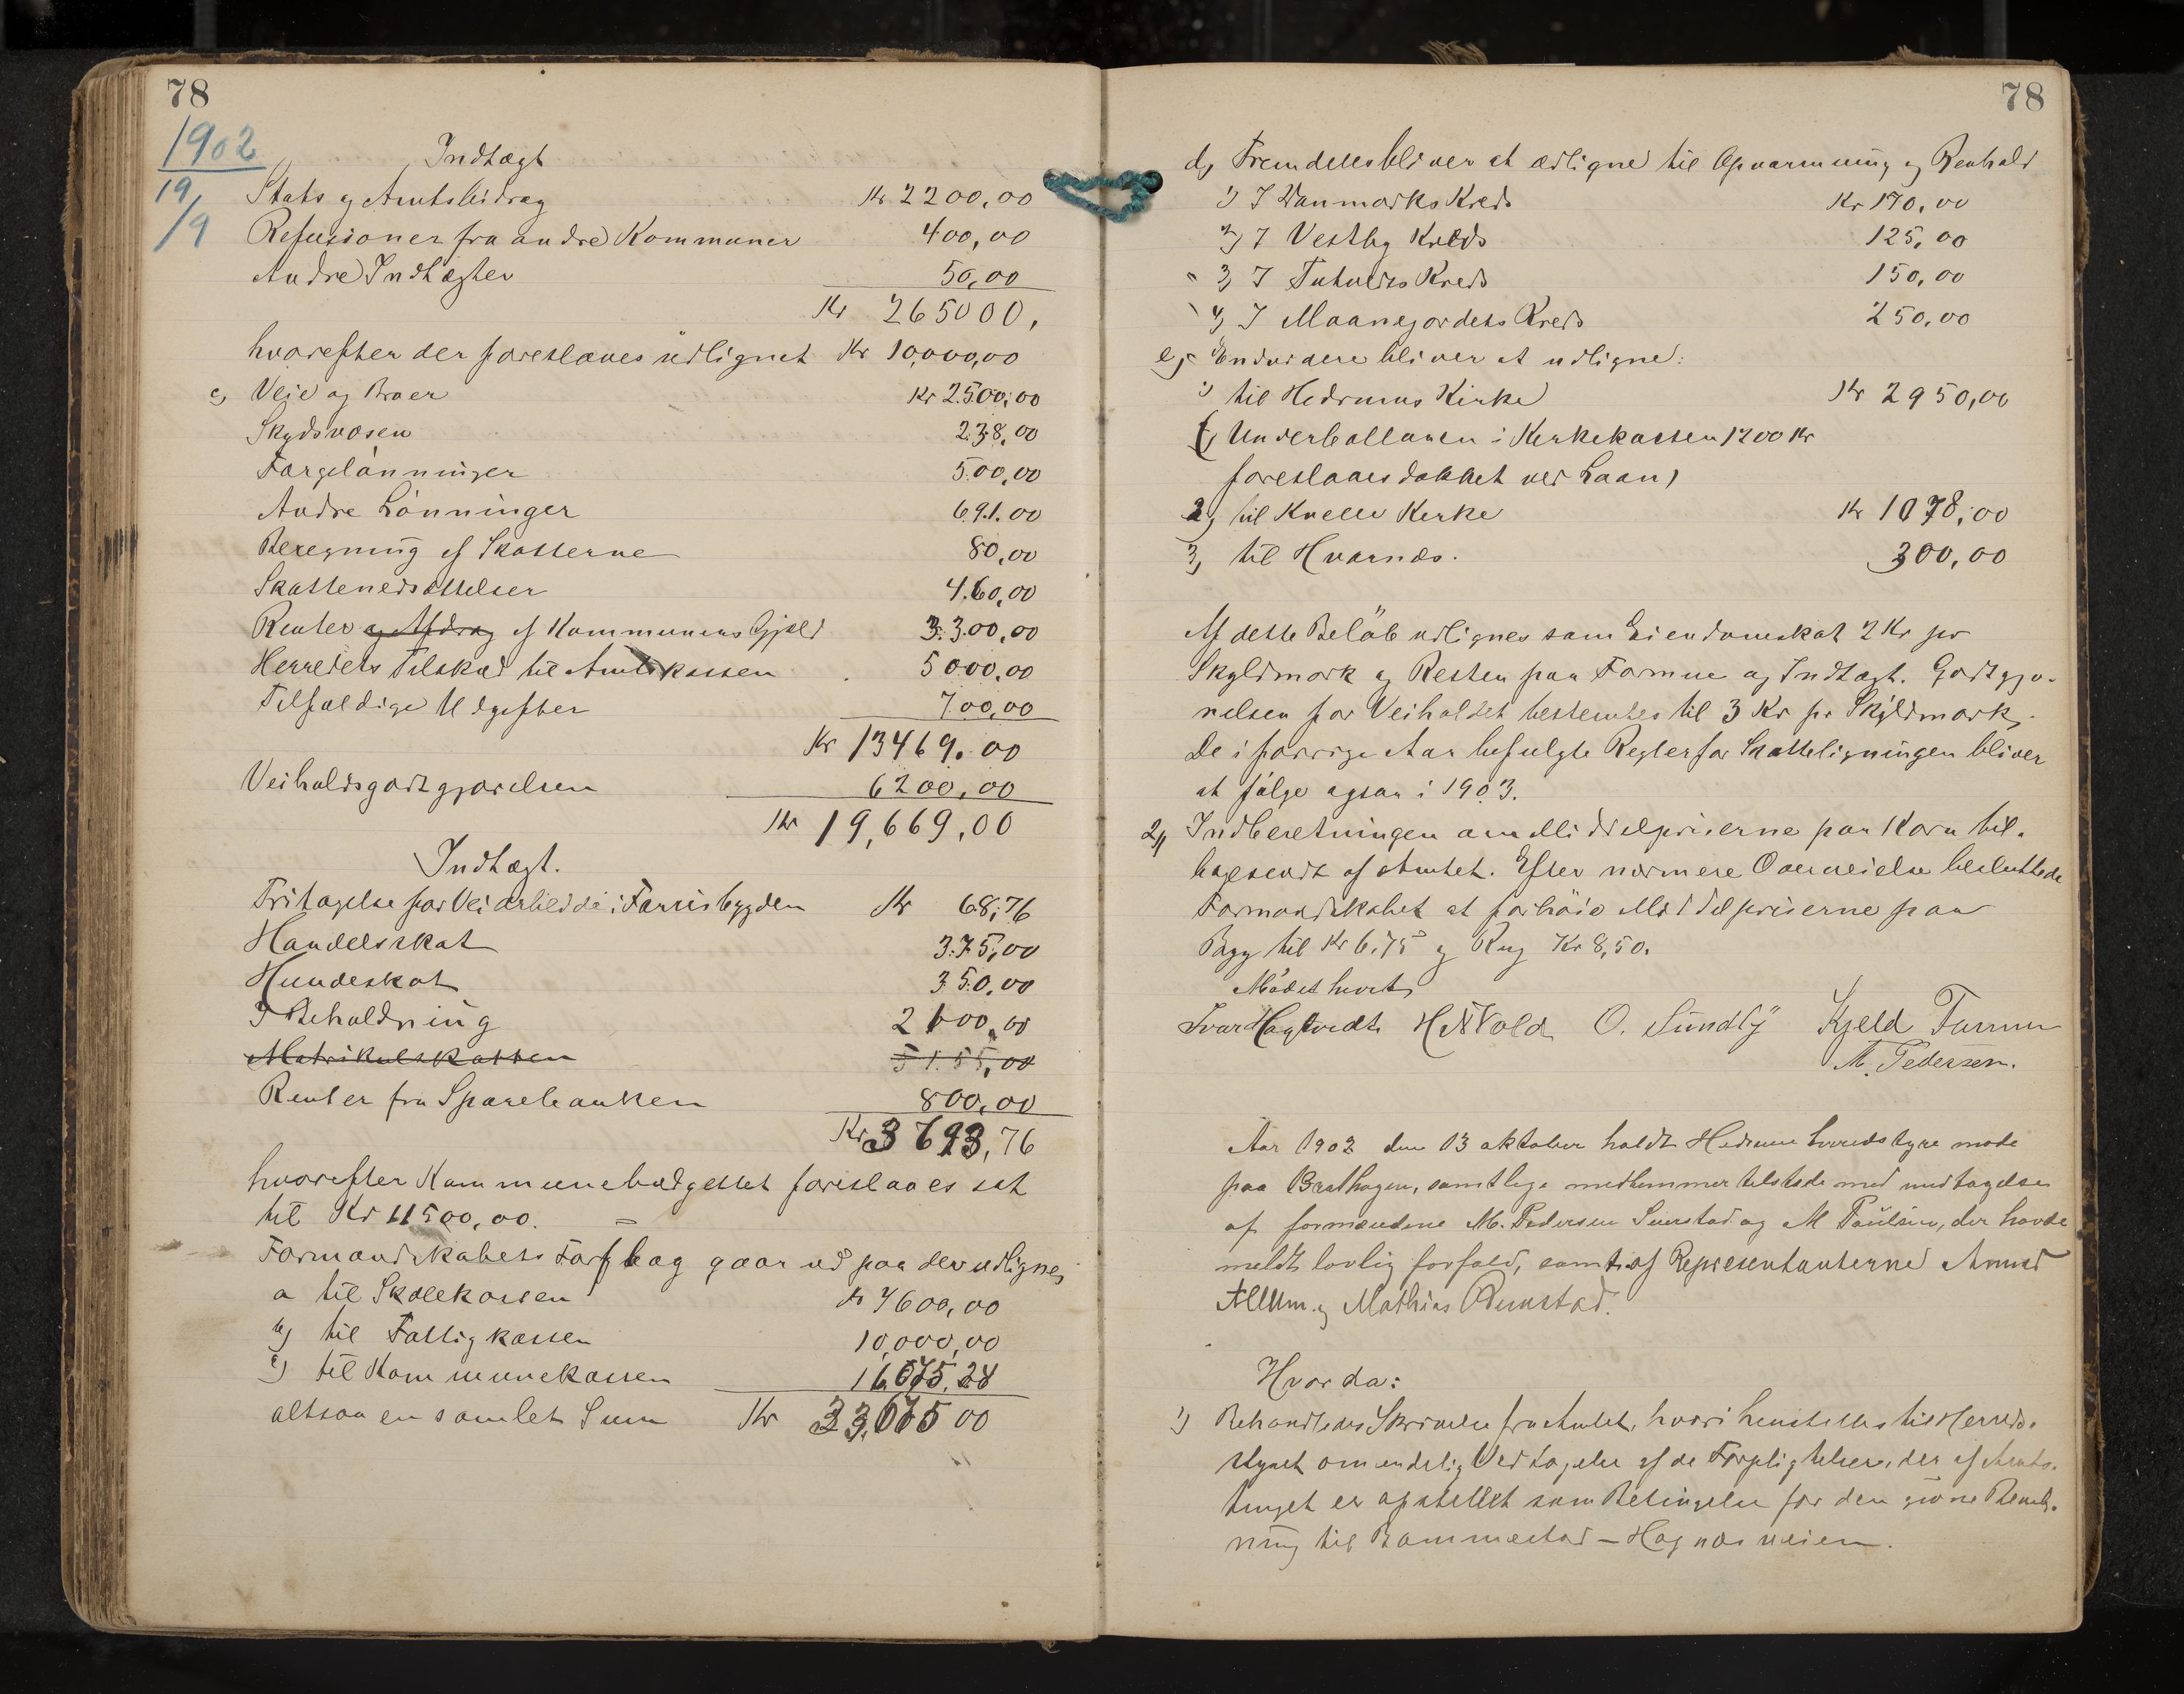 78
1902
19/9
Indtægt
Stats og Amtsbidrag Kr 2200,00
Refusioner fra andre Kommuner 400,00
Andre Indtægter 50,00
Kr 265000,
hvorefter der foreslaaes udlignet Kr 10,000,00
c, Veie og Broer Kr 2500,00
Skydsvæsen 238,00
Færgelönninger 500,00
Andre Lönninger 691.00
Beregning af Skatterne 80,00
Skattenedsættelser 460,00
Renter og Afdrag af Kommunens Gjæld 3300,00
Herredets Tilskud til Amtskassen 5000,00
Tilfældige Udgifter 700,00
Kr 13469.00
Veiholdsgodtgjørelsen 6200,00
Kr 19,669,00
Indtægt.
Fritagelse for Veiarbeide i Farrisbygden Kr 68,76
Handelsskat 375,00
Hundeskat 350,00
I Beholdning 2100,00
Matrikulskatten 5155,00
Renter fra Sparebanken 800,00
Kr 3693,76
hvorefter Kommunebudgettet foreslaaes sat
til Kr 11500,00.
Formandskabets Forslag gaar ud paa der udlignes
a til Skolekassen Kr 7600,00
b) til Fattigkassen 10,000,00
c) til Kommunekassen 16,075,24
altsaa en samlet Sum Kr 33,675 00
78
d, Fremdeles bliver at udligne til Opvarmning og Renhold
1) I Vanmarks Kreds Kr 170,00
2) I Vestby Kreds 125,00
3, I Kreds 150,00
4, I Maanejordets Kreds 250,00
e, Endvidere bliver at udligne:
1) til Hedrums Kirke Kr 2950,00
(Underballancen i Kirkekassen 1200 Kr
foreslaaes dækket ved Laan)
2, til Kvelle Kirke Kr 1078,00
3, til Hvarnæs. 300,00
Af dette Belöb udlignes som Eiendomskat 2 Kr pr
Skyldmark og Resten paa Formue og Indtægt. Godtgjø-
relsen for Veiholdet bestemtes til 3 Kr pr Skyldmark,
De i forrige Aar befulgte Regler for Skatteligningen bliver
at fölge ogsaa i 1903.
2, Indberetningen om Middelpriserne paa Korn til-
bagesendt af Amtet. Efter nærmere Overveielse besluttede
Formandskabet at forhöie Middelpriserne paa
Bygg til Kr 6.75 og Rug Kr 8,50.
Mødet hævet
Ivar Hagtvedt O. Sundby Kjeld Farmen
M. Pedersen.
Aar 1902 den 13 oktober holdt Hedrum herredstyre møde
paa Brathagen, samtlige medlemmer tilstede med undtagelse
af formændene M. Pedersen Suerstad og M Paulsen, der havde
meldt lovlig forfald, samt af Repræsentanterne
Allum og Mathias
Hvor da:
1) Behandledes Skrivelse fra Amtet, hvori henstilles til Herreds-
styret om endelig Vedtagelse af de Forpligtelser, der af Amts-
tinget er opstillet som Betingelse for den givne Bevilg-
ning til Bommestad – Hagnæs veien.